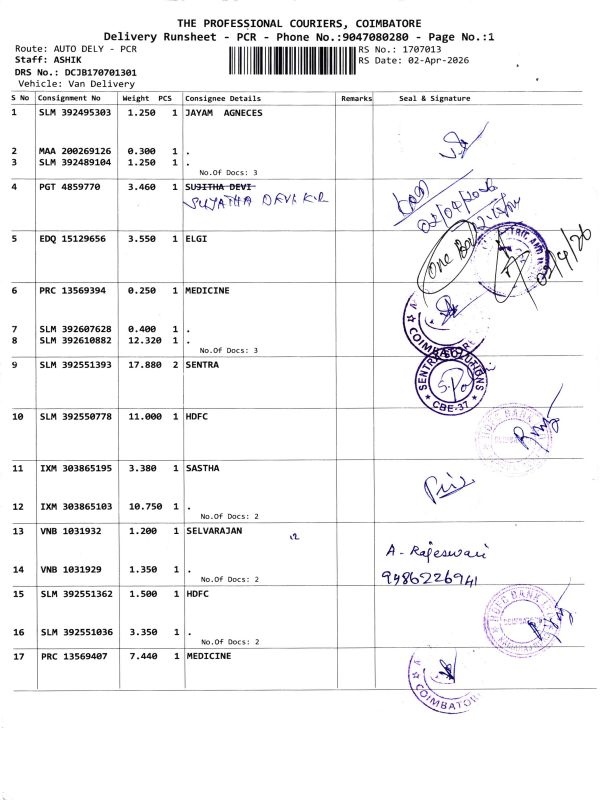 THE PROFESSIONAL COURIERS, COIMBATORE
Delivery Runsheet - PCR - Phone No.:9047080280 - Page No.:1
Route: AUTO DELY - PCR RS No.: 1707013
Staff: ASHIK RS Date: 02-Apr-2026
DRS No.: DCJB170701301
Vehicle: Van Delivery
S No Consignment No Weight PCS Consignee Details Remarks Seal & Signature
1 SLM 392495303 1.250 1 JAYAM AGNECES
2 MAA 200269126 0.300 1 .
3 SLM 392489104 1.250 1 .
No.Of Docs: 3
4 PGT 4859770 3.460 1 SUJITHA DEVI
SUJATHA DEVI K.R
02/04/2026
5 EDQ 15129656 3.550 1 ELGI
One Box
02/4/26
6 PRC 13569394 0.250 1 MEDICINE
7 SLM 392607628 0.400 1 .
8 SLM 392610882 12.320 1 .
No.Of Docs: 3
COIMBATORE
9 SLM 392551393 17.880 2 SENTRA
SENTRA SOLUTIONS
CBE-37
10 SLM 392550778 11.000 1 HDFC
HDFC BANK
11 IXM 303865195 3.380 1 SASTHA
12 IXM 303865103 10.750 1 .
No.Of Docs: 2
13 VNB 1031932 1.200 1 SELVARAJAN
12
A - Rajeswari
14 VNB 1031929 1.350 1 .
No.Of Docs: 2
9486226941
15 SLM 392551362 1.500 1 HDFC
HDFC BANK
16 SLM 392551036 3.350 1 .
No.Of Docs: 2
17 PRC 13569407 7.440 1 MEDICINE
COIMBATORE